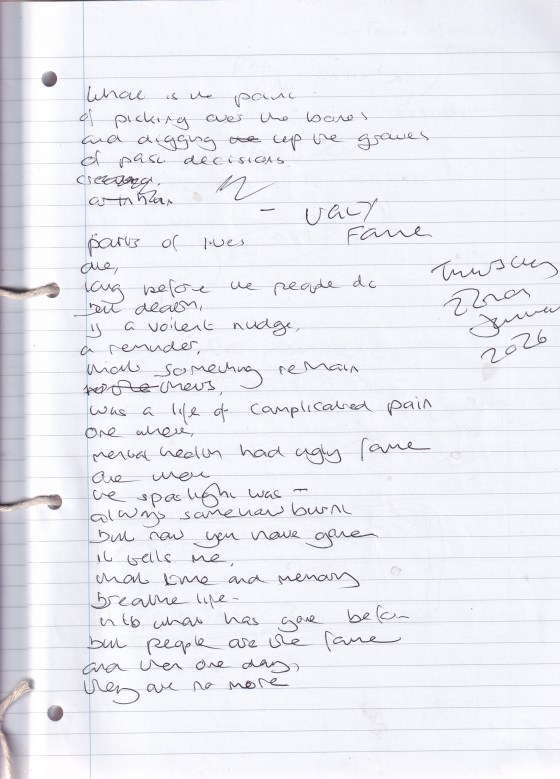 What is the point
of picking over the bones
and digging up the graves
of past decisions
– UGLY
Fame
Thursday
22nd
January
2026
parts of lives
die,
long before the people do
but death,
is a voilent nudge,
a reminder,
that something remain
was a life of complicated pain
one where,
mental health had ugly fame
one where
the spotlight was –
always somehow burnt
but now you have gone
it tells me,
that time and memory
breathe life –
into what has gone before
but people are the fame
and then one day,
they are no more